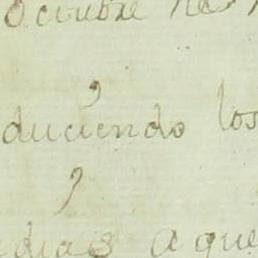 octubre de
duciendo los
dias aque